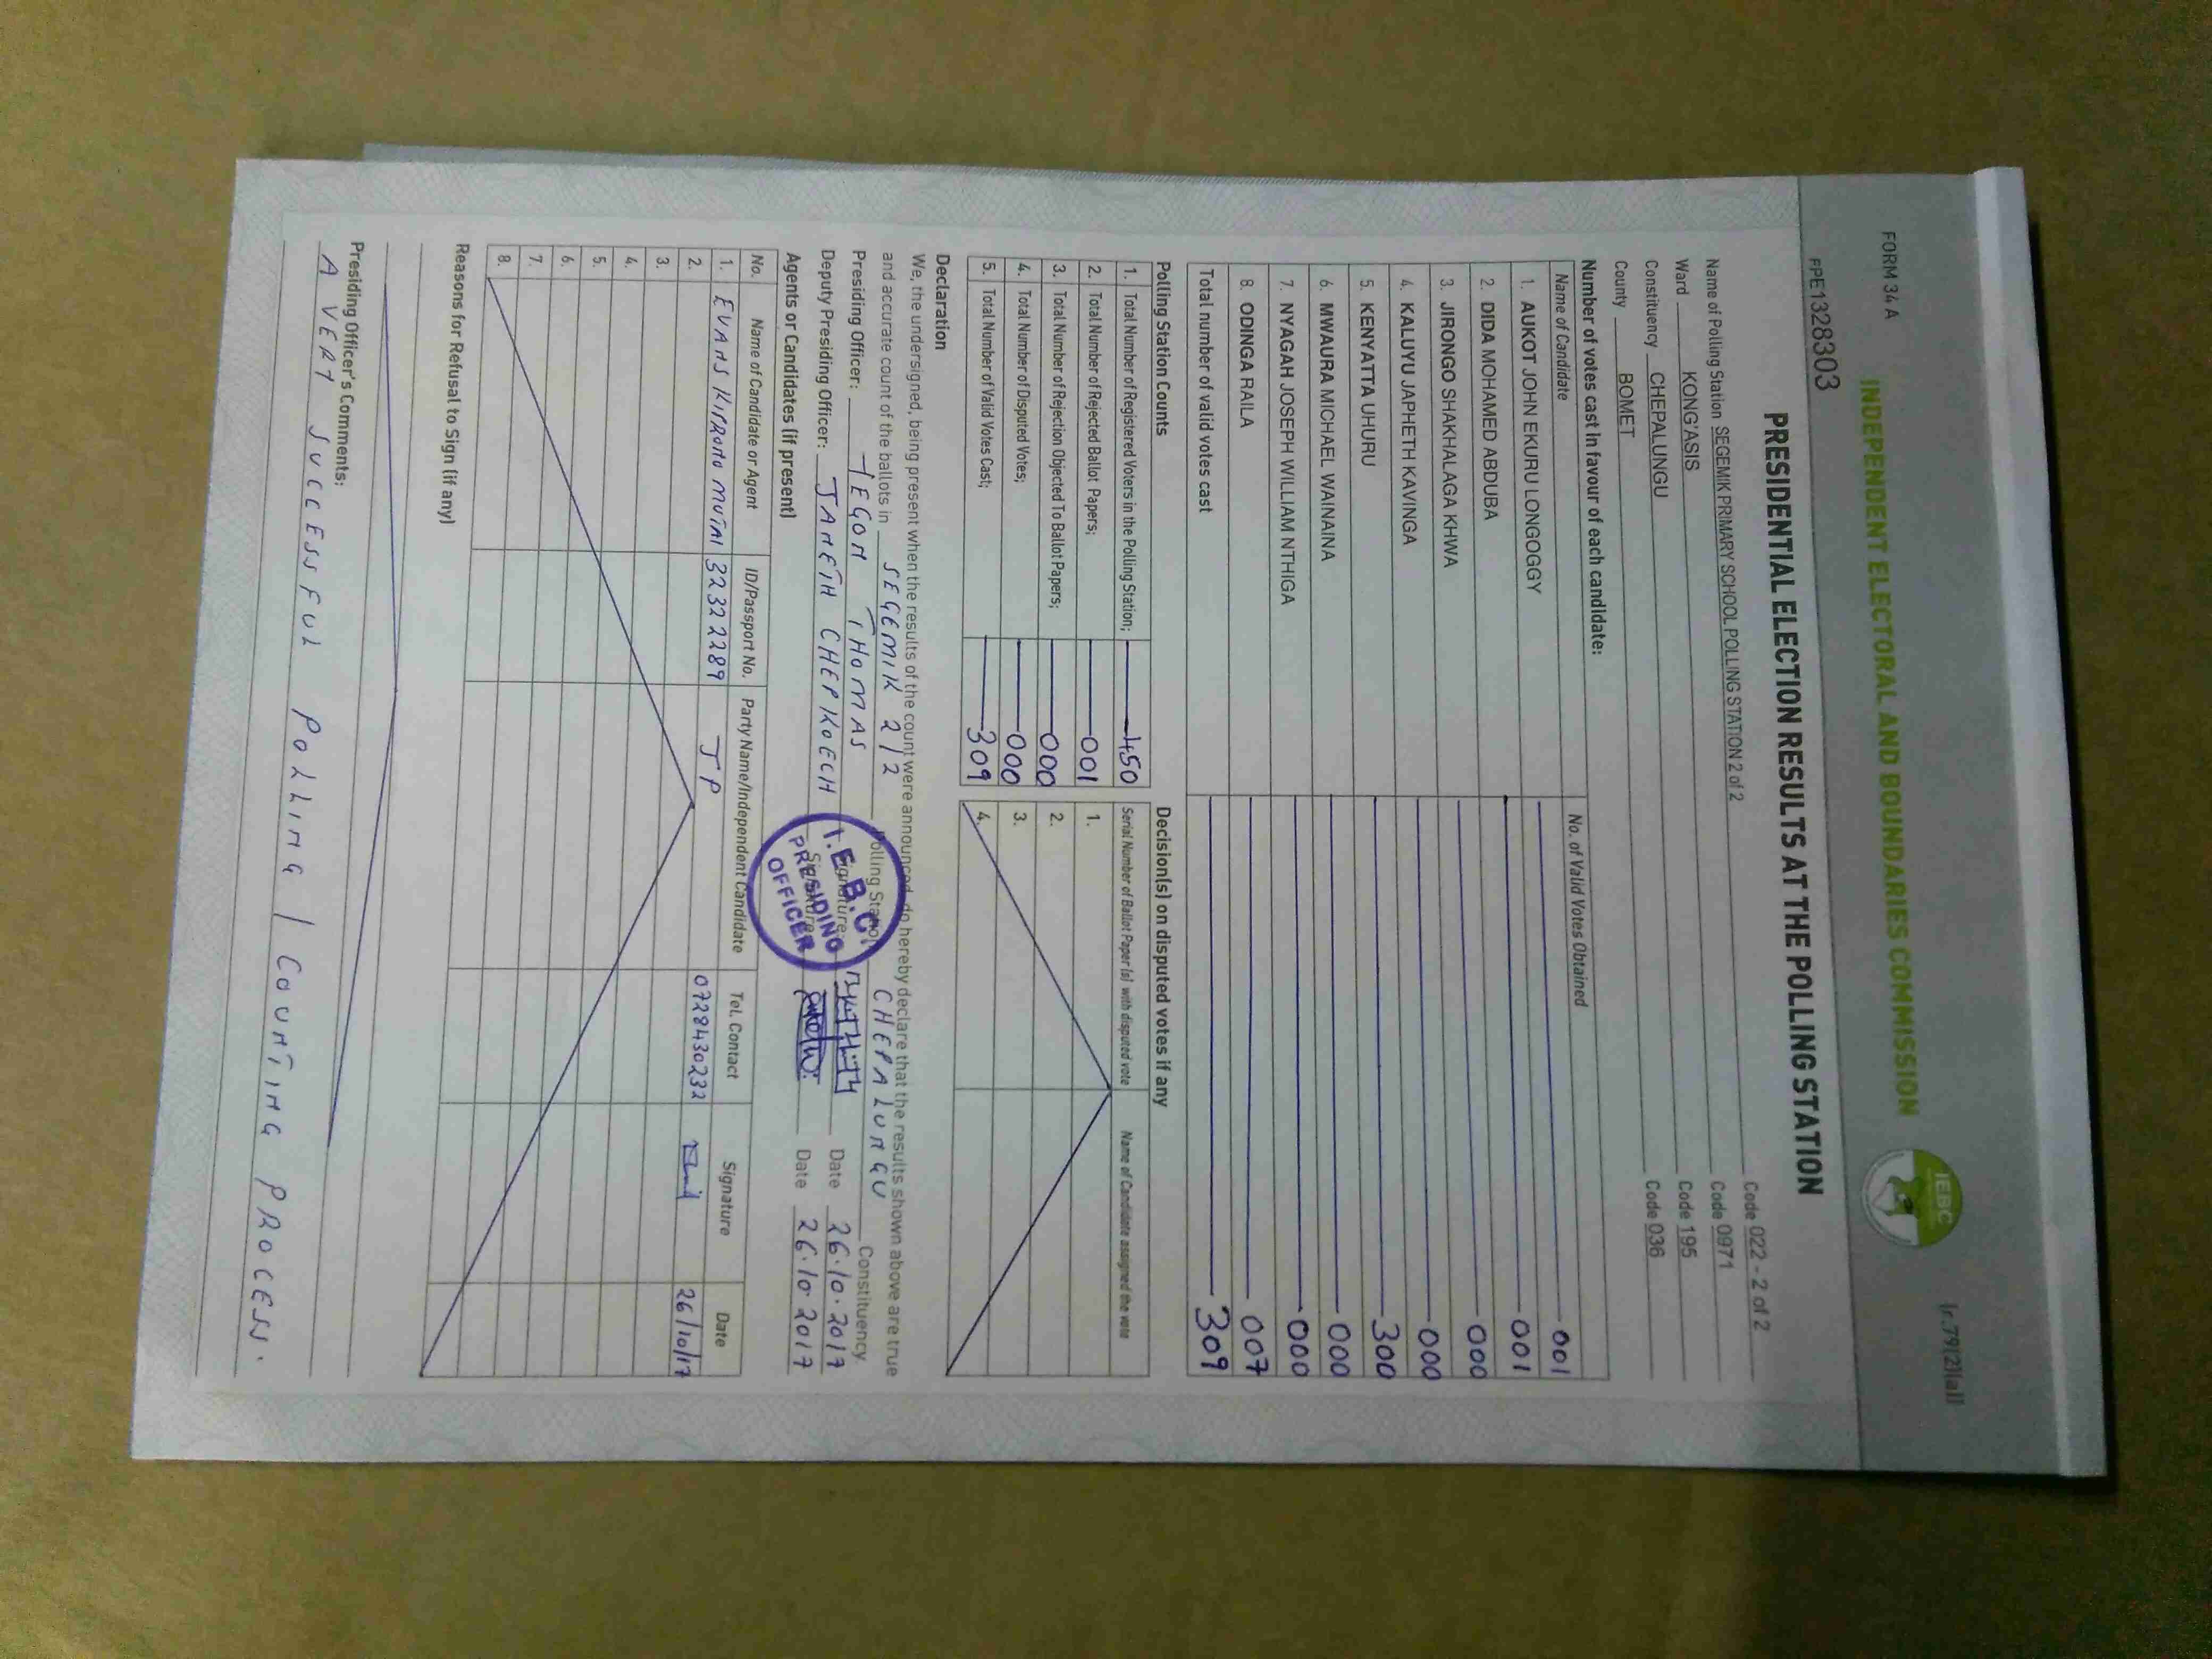 FORM 34 A
(r.79(2)(a))
INDEPENDENT ELECTORAL AND BOUNDARIES COMMISSION
IEBC
FPE1328303
PRESIDENTIAL ELECTION RESULTS AT THE POLLING STATION
Name of Polling Station SEGEMIK PRIMARY SCHOOL POLLING STATION 2 of 2 Code 022 - 2 of 2
Ward KONG'ASIS Code 0971
Constituency CHEPALUNGU Code 195
County BOMET Code 036
Number of votes cast in favour of each candidate:
Name of Candidate No. of Valid Votes Obtained
1. AUKOT JOHN EKURU LONGOGGY 001
2. DIDA MOHAMED ABDUBA 001
3. JIRONGO SHAKHALAGA KHWA 000
4. KALUYU JAPHETH KAVINGA 000
5. KENYATTA UHURU 300
6. MWAURA MICHAEL WAINAINA 000
7. NYAGAH JOSEPH WILLIAM NTHIGA 000
8. ODINGA RAILA 007
Total number of valid votes cast 309
Polling Station Counts
1. Total Number of Registered Voters in the Polling Station; 450
2. Total Number of Rejected Ballot Papers; 001
3. Total Number of Rejection Objected To Ballot Papers; 000
4. Total Number of Disputed Votes; 000
5. Total Number of Valid Votes Cast; 309
Decision(s) on disputed votes if any
Serial Number of Ballot Paper (s) with disputed vote Name of Candidate assigned the vote
1.
2.
3.
4.
Declaration
We, the undersigned, being present when the results of the count were announced, do hereby declare that the results shown above are true
and accurate count of the ballots in SEGEMIK 2/2 Polling Station CHEPALUNGU Constituency
Presiding Officer: TEGON THOMAS Signature: Date 26.10.2017
Deputy Presiding Officer: JANETH CHEPKOECH Signature: Date 26.10.2017
I.E.B.C
PRESIDING
OFFICER
Agents or Candidates (if present)
No. Name of Candidate or Agent ID/Passport No. Party Name/Independent Candidate Tel. Contact Signature Date
1. EVANS KIPROTO MUTAI 32322289 JP 0728430232 26/10/17
2.
3.
4.
5.
6.
7.
8.
Reasons for Refusal to Sign (if any)
Presiding Officer's Comments:
A VERY SUCCESSFUL POLLING / COUNTING PROCESS.